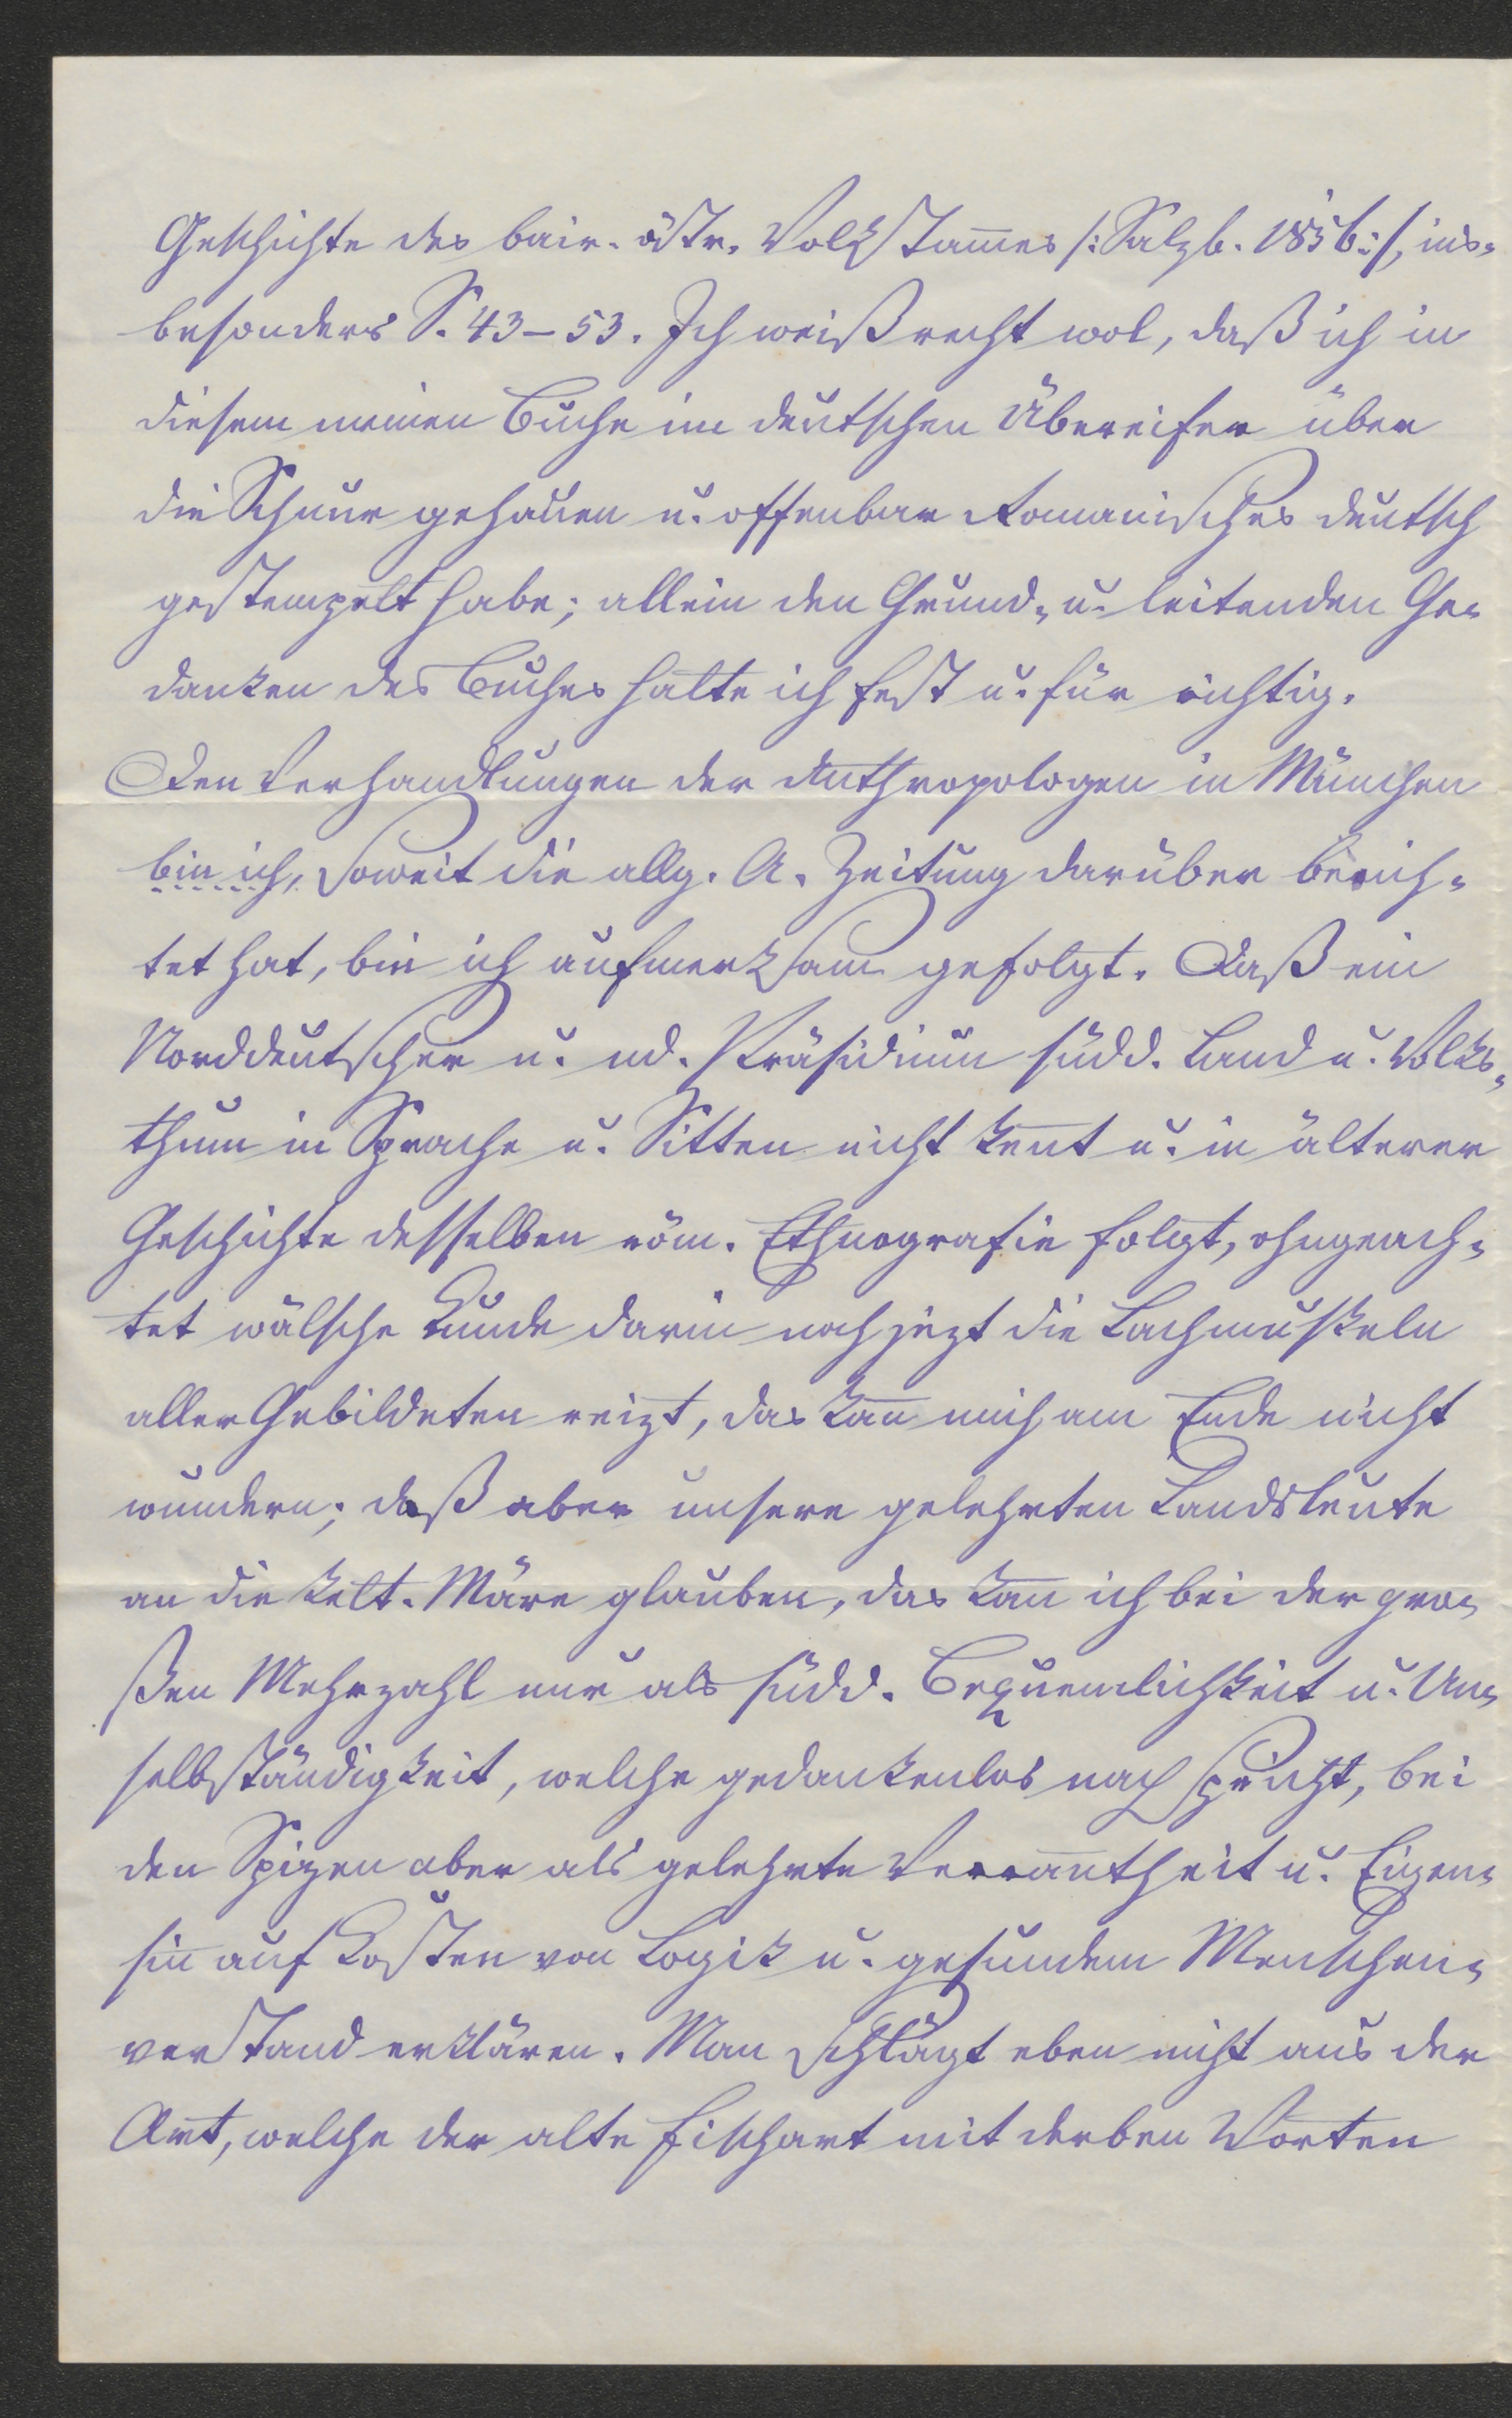 Geschichte des bair. östr. Volkstam̅es /: Salzb. 1856:/, ins-
besonders S. 43–53. Ich weiß recht wol, daß ich in
diesem meinen Buche im deutschen Übereifer über
die Schnur gehauen u. offenbar Romanisches deutsch
gestempelt habe; allein den Grund- u. leitenden Ge-
danken des Buches halte ich fest u. für richtig.
Den Verhandlungen der Anthropologen in München
bin ich, soweit die allg. A. Zeitung darüber berich-
tet hat, bin ich aufmerksam gefolgt. Daß ein
Norddeutscher u. nd. Präsidium südd. Land u. Volks-
thum in Sprache u. Sitten nicht ken̅t u. in älterer
Geschichte desselben röm. Ethnografie folgt, ohngeach-
tet wälsche Kunde darin noch jezt die Lachmuskeln
aller Gebildeten reizt, das kan̅ mich am Ende nicht
wundern; daß aber unsere gelehrten Landsleute
an die kelt. Märe glauben, das kan̅ ich bei der gro-
ßen Mehrzahl nur als südd. Bequemlichkeit u. Un-
selbständigkeit, welche gedankenlos nach spricht, bei
den Spizen aber als gelehrte Verran̅theit u. Eigen-
sin̅ auf Kosten von Logik u. gesundem Menschen-
verstand erklären. Man schlägt eben nicht aus der
Art, welche der alte Fischart mit derben Worten